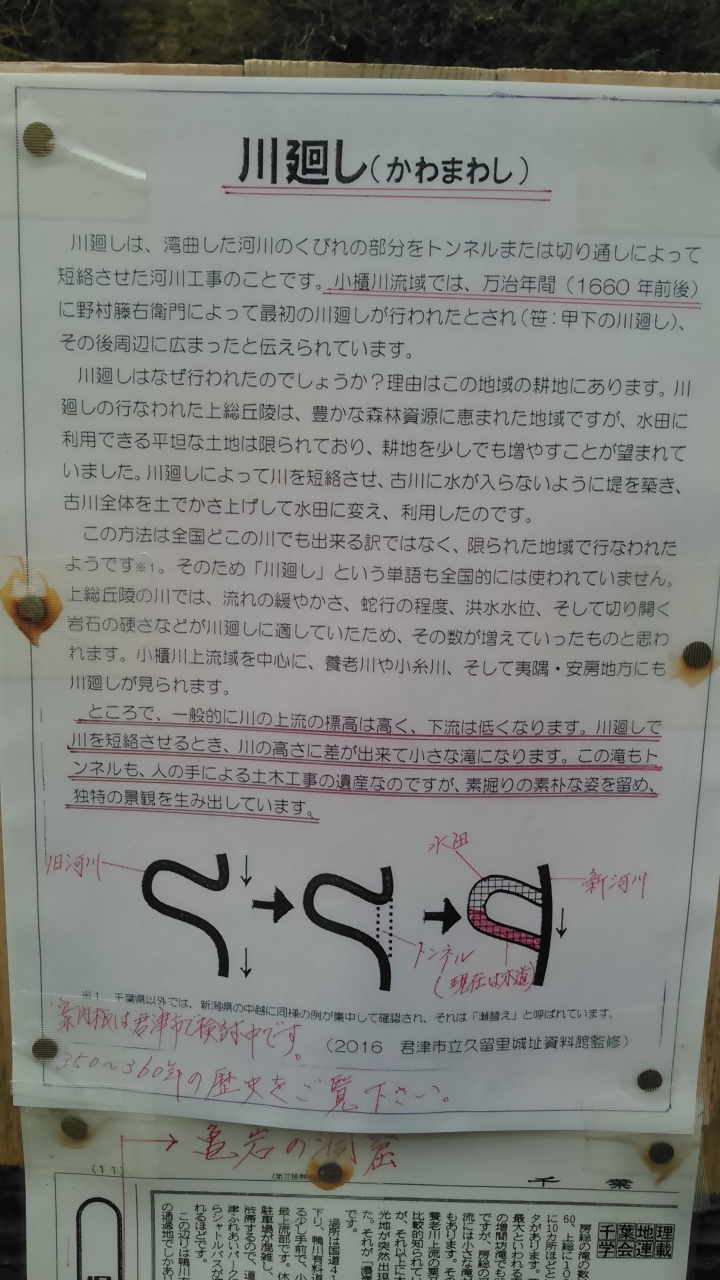 川廻し(かわまわし)
川廻しは、湾曲した河川のくびれの部分をトンネルまたは切り通しによって
短絡させた河川工事のことです。小櫃川流域では、万治年間(1660 年前後)
に野村藤右衛門によって最初の川廻しが行われたとされ(笹:甲下の川廻し)、
その後周辺に広まったと伝えられています。
川廻しはなぜ行われたのでしょうか?理由はこの地域の耕地にあります。川
廻しの行なわれた上総丘陵は、豊かな森林資源に恵まれた地域ですが、水田に
利用できる平坦な土地は限られており、耕地を少しでも増やすことが望まれて
いました。川廻しによって川を短絡させ、古川に水が入らないように堤を築き、
古川全体を土でかさ上げして水田に変え、利用したのです。
この方法は全国どこの川でも出来る訳ではなく、限られた地域で行なわれた
ようです※1。そのため「川廻し」という単語も全国的には使われていません。
上総丘陵の川では、流れの緩やかさ、蛇行の程度、洪水水位、そして切り開く
岩石の硬さなどが川廻しに適していたため、その数が増えていったものと思わ
れます。小櫃川上流域を中心に、養老川や小糸川、そして夷隅・安房地方にも
川廻しが見られます。
ところで、一般的に川の上流の標高は高く、下流は低くなります。川廻しで
川を短絡させるとき、川の高さに差が出来て小さな滝になります。この滝もト
ンネルも、人の手による土木工事の遺産なのですが、素掘りの素朴な姿を留め、
独特の景観を生み出しています。
旧河川
水田
新河川
トンネル
(現在は水道)
※1 千葉県以外では、新潟県の中越に同様の例が集中して確認され、それは「瀬替え」と呼ばれています。
案内板は君津市で検討中です。
(2016 君津市立久留里城址資料館監修)
350〜360年の歴史をご覧下さい。
→ 亀岩の洞窟
(11)
千 葉
理科
地連
葉会
千学
房総の滝の数
60、上総に10
に10カ所ほどと
タがあります。
最大といわれる
の増間坊滝でも
ですが、房総の
流には小さな滝
もあります。そ
養老川上流の粟
比較的知られてい
が、それ以上に大
光地が突然出現
た。それが「濃溝
です。
場所は国道41
下り、鴨川有料道
る少し手前で、小
最上流部です。休
駐車場が混雑し、
渋滞するので、道
津ふれあいパーク
らシャトルバスが
れるほどです。
この辺りは鴨川
の通過地でしかあ